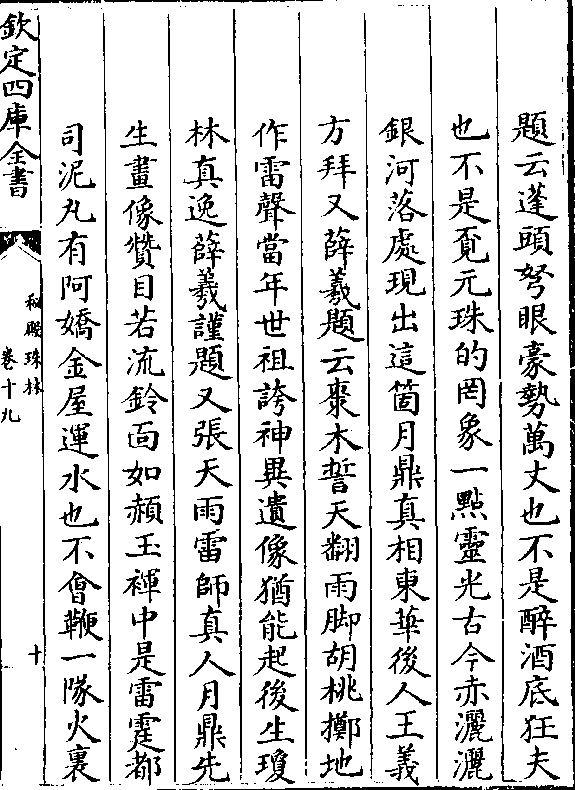 題云蓬頭弩眼豪勢萬丈也不是醉酒底狂夫
也不是覔元珠的罔象一點靈光古今赤灑灑
銀河落處現出這箇月鼎真相東華後人王義
方拜又薛羲題云棗木誓天翻雨脚胡桃擲地
作雷聲當年世祖誇神異遺像猶能起後生瓊
林真逸薛羲謹題又張天雨雷師真人月鼎先
生畫像贊目若流鈴面如赬玉褌中是雷霆都
司泥丸有阿嬌金屋運水也不會鞭一隊火裏
欽定四庫全書
秘殿珠林
卷十九
十